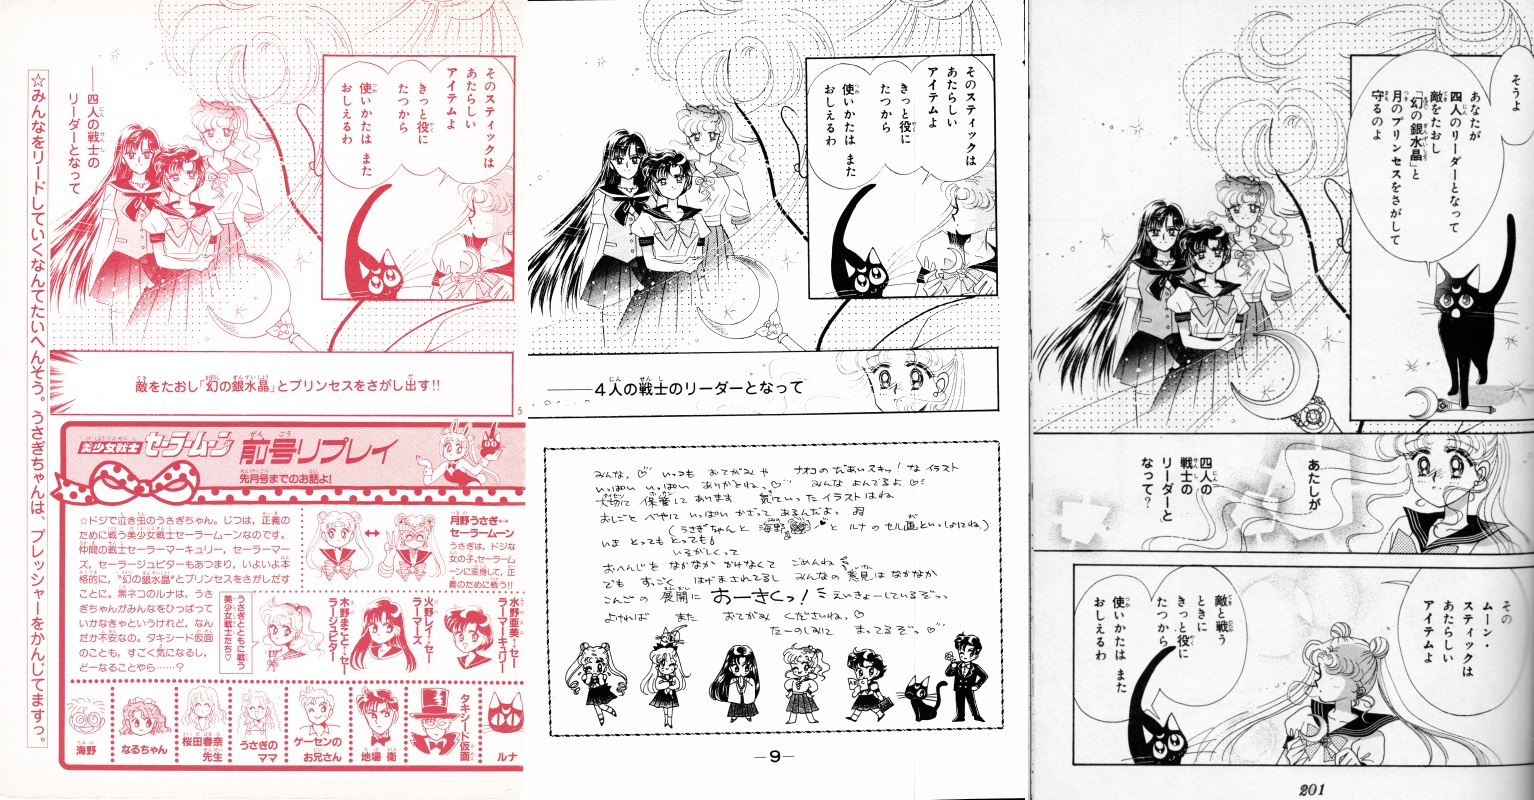 そのスティックは
あたらしい
アイテムよ
きっと役に
たつから
使いかたは また
おしえるわ
──四人の戦士の
リーダーとなって
☆みんなをリードしていくなんてたいへんそう。うさぎちゃんは、プレッシャーをかんじてますっ。
敵をたおし「幻の銀水晶」とプリンセスをさがし出す!!
5
美少女戦士セーラームーン 前号リプレイ
先月号までのお話よ!
☆ドジで泣き虫のうさぎちゃん。じつは、正義の
ために戦う美少女戦士セーラームーンなのです。
仲間の戦士セーラーマーキュリー、セーラーマー
ズ、セーラージュピターもあつまり、いよいよ本
格的に、“幻の銀水晶”とプリンセスをさがしだす
ことに。黒ネコのルナは、うさ
ぎちゃんがみんなをひっぱって
いかなきゃというけれど、なん
だか不安なの。タキシード仮面
のことも、すごく気になるし、
どーなることやら……?
月野うさぎ↔
セーラームーン
うさぎは、ドジな
女の子。セーラーム
ーンに変身して、正
義のために戦う!!
水野亜美・セー
ラーマーキュリー
火野レイ・セー
ラーマーズ
木野まこと・セー
ラージュピター
うさぎとともに戦う
美少女戦士たち♡
海野
なるちゃん
桜田春奈
先生
うさぎの
ママ
ゲーセンの
お兄さん
地場 衛
タキシード仮面
ルナ
そのスティックは
あたらしい
アイテムよ
きっと役に
たつから
使いかたは また
おしえるわ
──4人の戦士のリーダーとなって
みんな。♡ いつも おてがみや ナオコの だあいスキッ! なイラスト
いっぱい いっぱい ありがとね。♡ みんな よんでるよ。♡
大切に 保管して あります 気にいった イラストはね
おしごと べやに いっぱい かざって あるんだよっ
(うさぎちゃんと 海野 ♡ と ルナ のセル画といっしょにね。)
いま とっても とっても
いそがしくって
おへんじを なかなか かけなくて ごめんね
でも すっごく はげまされてるし みんなの 意見は なかなか
こんごの 展開に おーきくっ! えいきょーしているぞっっ
よければ また おてがみ くださいね。♡
たーのしみに まってるぞっ♡
─9─
そうよ
あなたが
四人のリーダーとなって
敵をたおし
「幻の銀水晶」と
月のプリンセスをさがして
守るのよ
あたしが
四人の
戦士の
リーダーと
なって?
その
ムーン・
スティックは
アイテムよ
敵と戦う
ときに
きっと役に
たつから
使いかたは また
おしえるわ
201